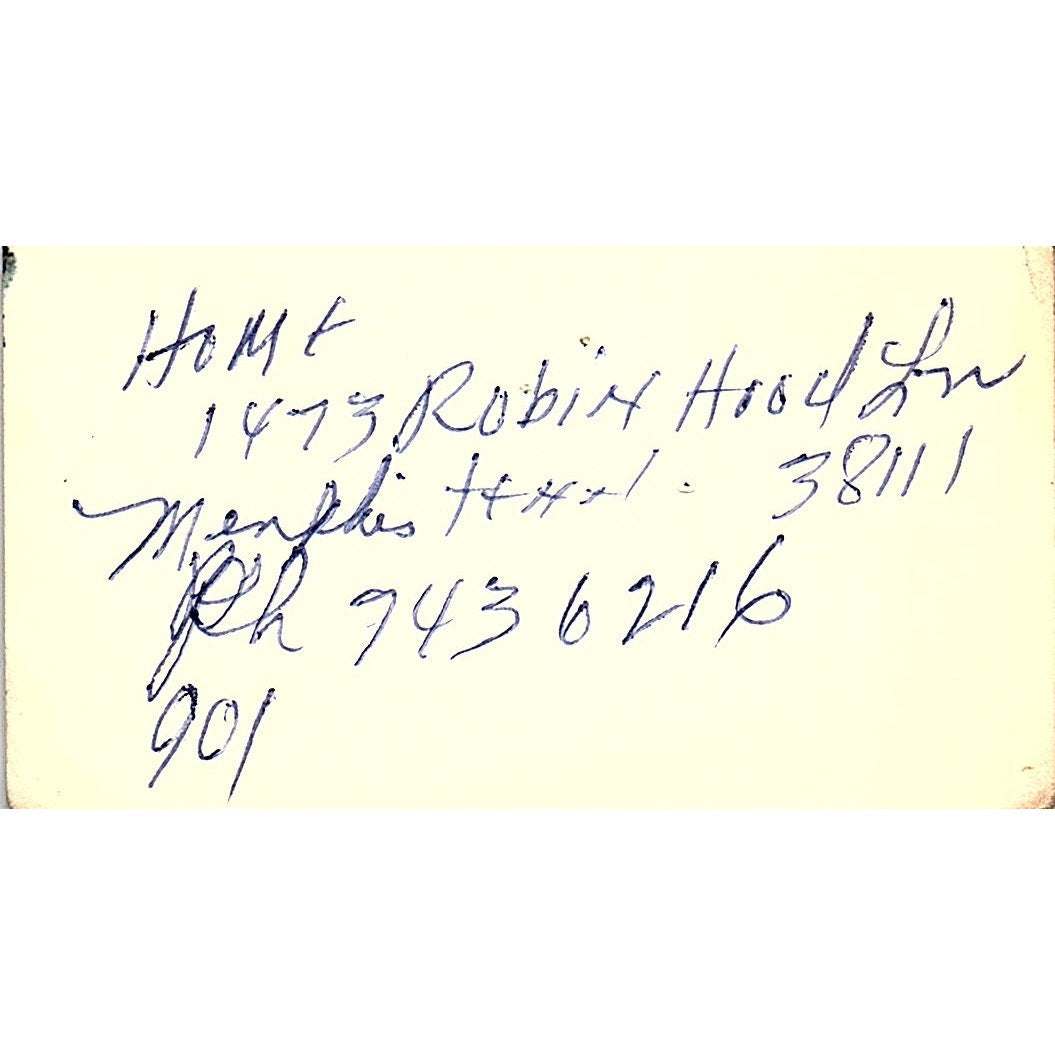 Home
1473 Robin Hood Ln
Memphis Tenn. 38111
Ph 743 6216
901